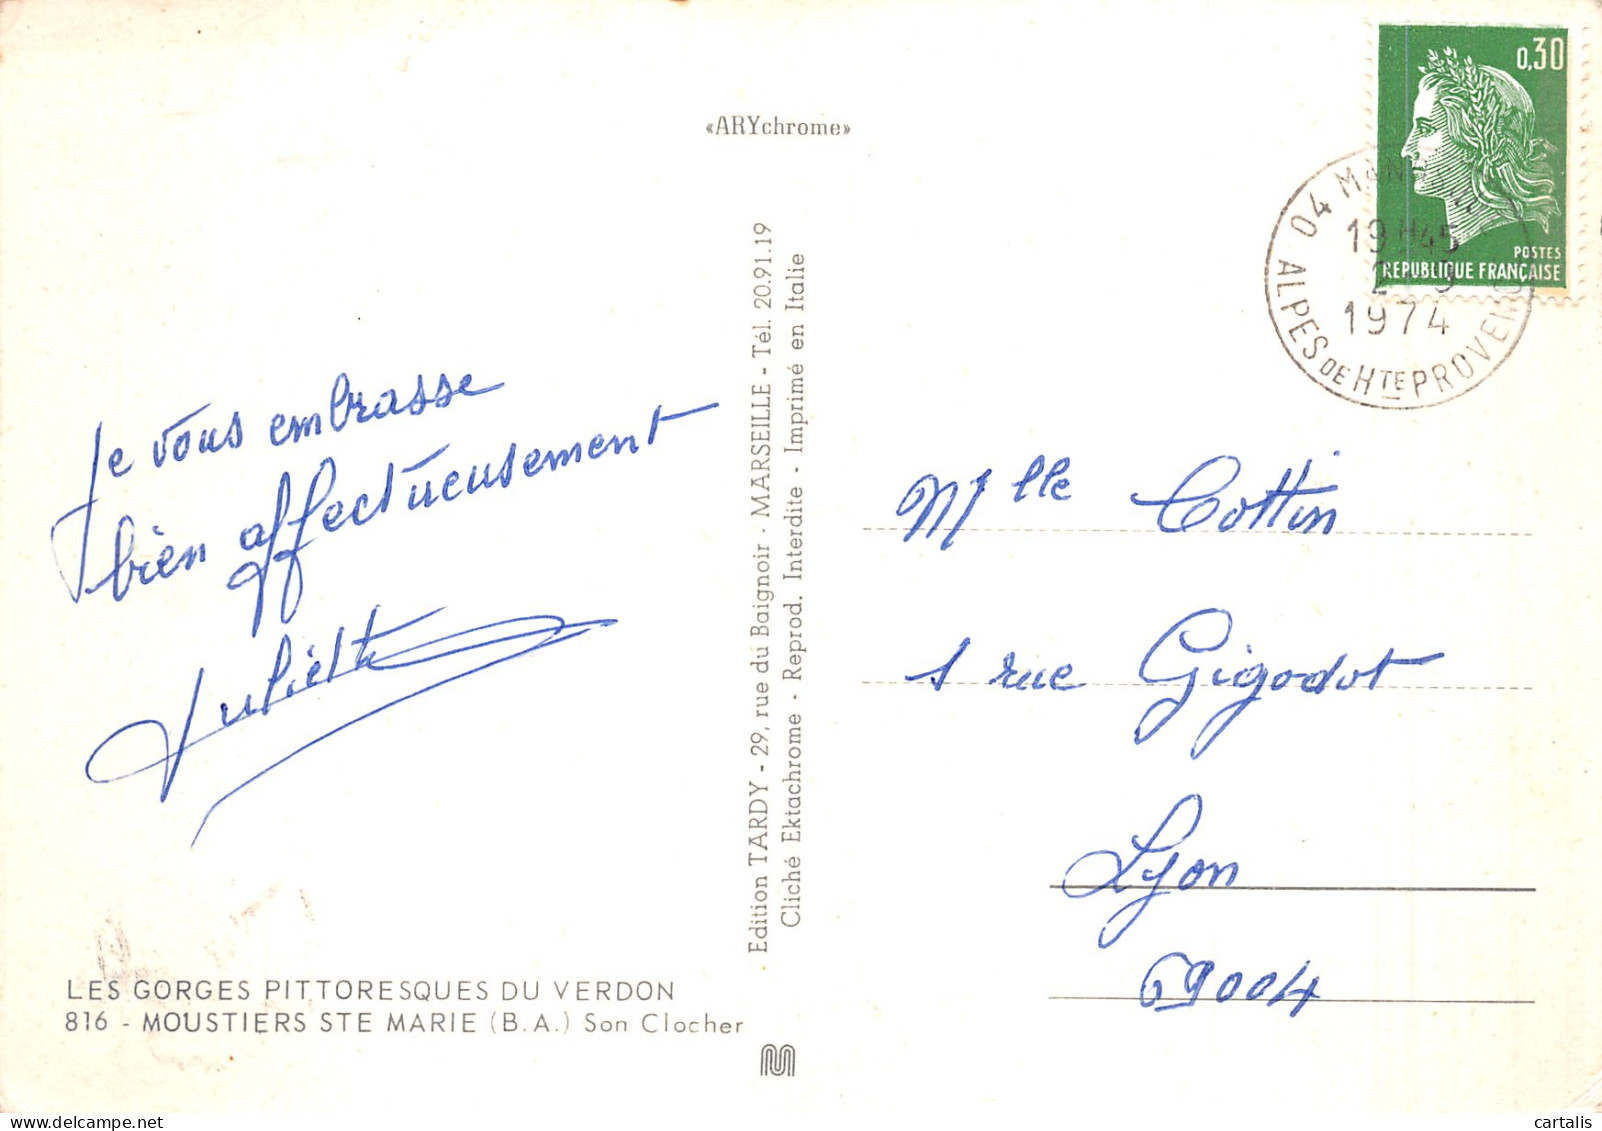 «ARYchrome»
0,30
POSTES
REPUBLIQUE FRANÇAISE
04
19H45
1974
ALPES DE HTE PROVENCE
Je vous embrasse
bien affectueusement
Juliette
Edition TARDY - 29, rue du Baignoir - MARSEILLE - Tél. 20.91.19
Cliché Ektachrome - Reprod. Interdite - Imprimé en Italie
Mlle Cottin
1 rue Gigodot
Lyon
69004
LES GORGES PITTORESQUES DU VERDON
816 - MOUSTIERS STE MARIE (B.A.) Son Clocher
cartalis